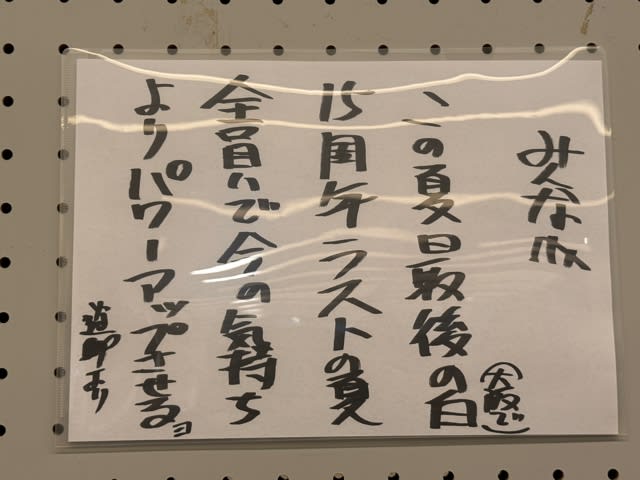 みんな
この夏最後の白
(大阪で)
15周年ラストの夏
全員で今の気持ち
よりパワーアップさせるヨ
より